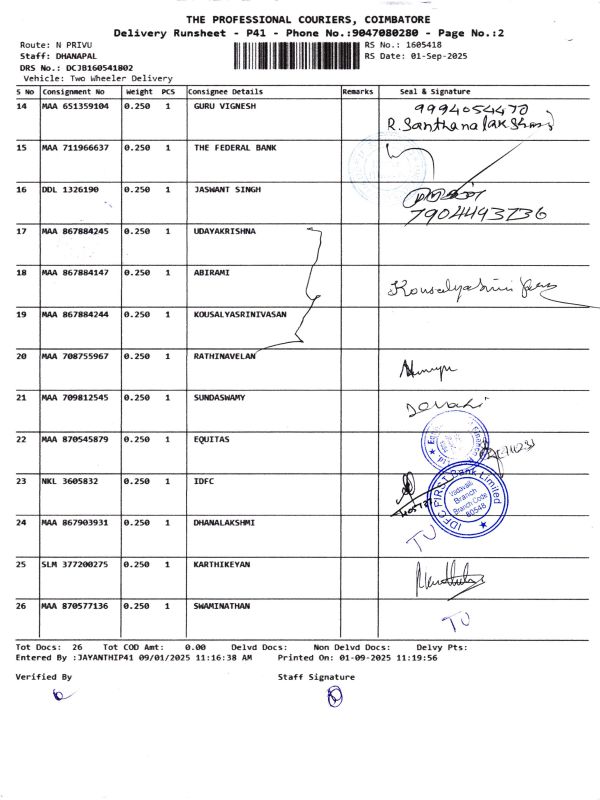 THE PROFESSIONAL COURIERS, COIMBATORE
Delivery Runsheet - P41 - Phone No.:9047080280 - Page No.:2
Route: N PRIVU RS No.: 1605418
Staff: DHANAPAL RS Date: 01-Sep-2025
DRS No.: DCJB160541802
Vehicle: Two Wheeler Delivery
S No Consignment No Weight PCS Consignee Details Remarks Seal & Signature
14 MAA 651359104 0.250 1 GURU VIGNESH 9994054470
R.Santhanalakshmi
15 MAA 711966637 0.250 1 THE FEDERAL BANK
16 DDL 1326190 0.250 1 JASWANT SINGH
7904493736
17 MAA 867884245 0.250 1 UDAYAKRISHNA
18 MAA 867884147 0.250 1 ABIRAMI Kousalyasrini
19 MAA 867884244 0.250 1 KOUSALYASRINIVASAN
20 MAA 708755967 0.250 1 RATHINAVELAN
21 MAA 709812545 0.250 1 SUNDASWAMY
22 MAA 870545879 0.250 1 EQUITAS
23 NKL 3605832 0.250 1 IDFC
IDFC FIRST Bank Limited
Vadavalli
Branch
Branch Code
80548
24 MAA 867903931 0.250 1 DHANALAKSHMI TU
25 SLM 377200275 0.250 1 KARTHIKEYAN
26 MAA 870577136 0.250 1 SWAMINATHAN TU
Tot Docs: 26 Tot COD Amt: 0.00 Delvd Docs: Non Delvd Docs: Delvy Pts:
Entered By :JAYANTHIP41 09/01/2025 11:16:38 AM Printed On: 01-09-2025 11:19:56
Verified By Staff Signature